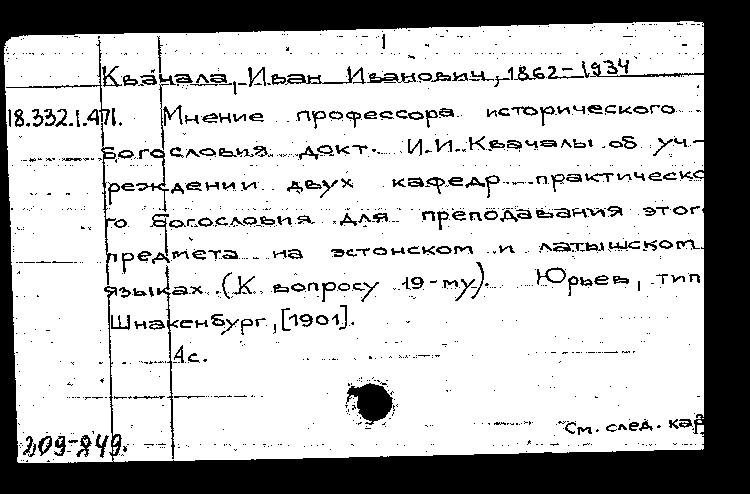 Квачала, Иван Иванович, 1862-1934
18.332.1.471. Мнение профессора исторического
богословия докт. И.И.Квачалы об уч-
реждении двух кафедр практическо
го богословия для преподавания этого
предмета на эстонском и латышском
языках. (К вопросу 19-му). Юрьев, тип
Шнакенбург, [1901].
Ас.
См. след. кар
209-849.